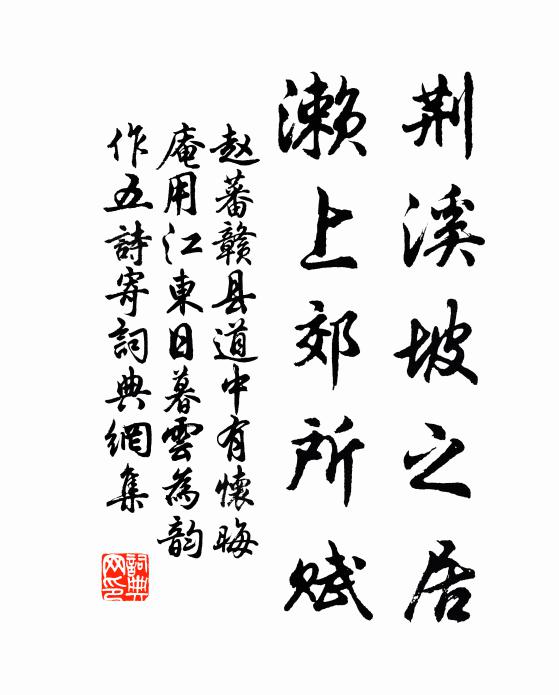 荆溪坡之居
濑上郊所赋
赵蕃赣县道中有懷晦
庵用江東日暮雲為韵
作五詩寄詞典網集
詞典
网印